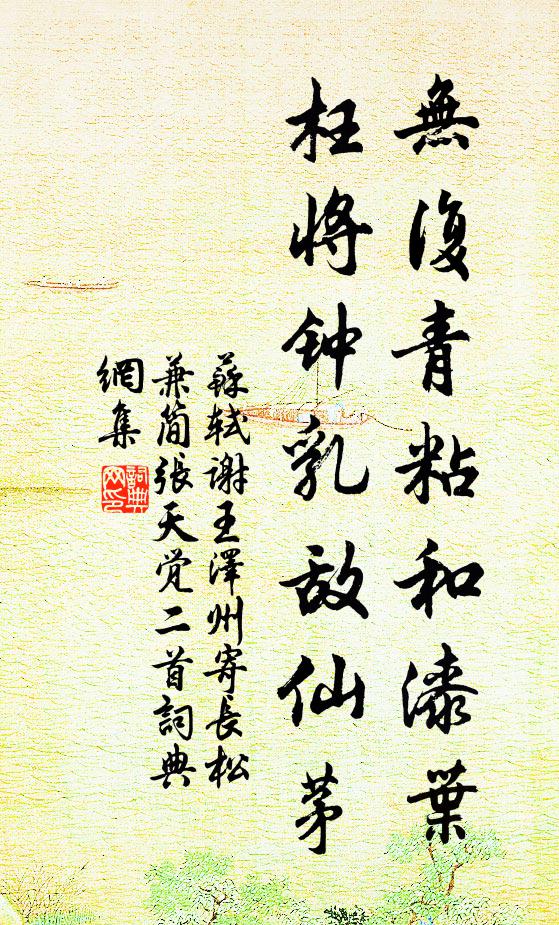 無復青粘和漆葉
枉将钟乳敌仙茅
蘇軾謝王澤州寄長松
兼简張天觉二首詞典
網集
詞典
网印